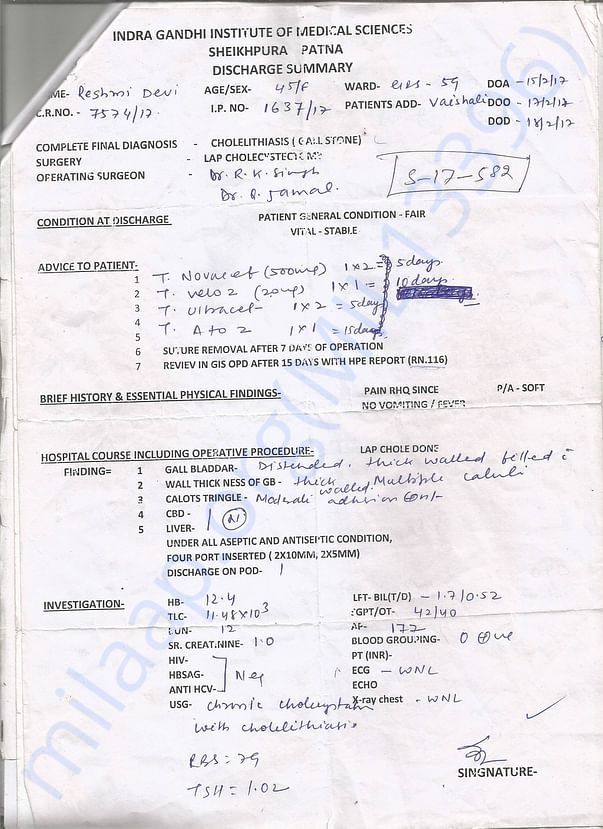 INDRA GANDHI INSTITUTE OF MEDICAL SCIENCES
SHEIKHPURA PATNA
DISCHARGE SUMMARY
Reshmi Devi AGE/SEX- 45/F WARD- 59 DOA -15/2/17
C.R.NO. - 7574/17. I.P. NO- 1637/17 PATIENTS ADD- Vaishali DOO - 17/2/17
DOD - 18/2/17
COMPLETE FINAL DIAGNOSIS - CHOLELITHIASIS ( GALL STONE)
SURGERY - LAP CHOLECYSTECTOMY
OPERATING SURGEON - Dr. R. K. Singh
Dr. Jamal.
S-17-582
CONDITION AT DISCHARGE PATIENT GENERAL CONDITION - FAIR
VITAL - STABLE
ADVICE TO PATIENT-
1 T. Novacef (500mg) 1 x 2 = 5 days
2 T. velo 2 (20mg) 1 x 1 = 10 days
3 T. Ultracet 1 x 2 = 5 days
4 T. A to 2 1 x 1 = 15 days
5
6 SUTURE REMOVAL AFTER 7 DAYS OF OPERATION
7 REVIEV IN GIS OPD AFTER 15 DAYS WITH HPE REPORT (RN.116)
BRIEF HISTORY & ESSENTIAL PHYSICAL FINDINGS- PAIN RHQ SINCE P/A - SOFT
NO VOMITING / FEVER
HOSPITAL COURSE INCLUDING OPERATIVE PROCEDURE- LAP CHOLE DONE
FINDING= 1 GALL BLADDAR- Distended, thick walled filled c̄
2 WALL THICK NESS OF GB - thick walled. Multiple calculi
3 CALOTS TRINGLE - Moderate adhesion
4 CBD -
5 LIVER- N
UNDER ALL ASEPTIC AND ANTISEPTIC CONDITION,
FOUR PORT INSERTED ( 2X10MM, 2X5MM)
DISCHARGE ON POD- 1
INVESTIGATION- HB- 12.4 LFT- BIL(T/D) - 1.7/0.52
TLC- 11.48x10³ SGPT/OT- 42/40
BUN- 12 AP- 172
SR. CREAT.NINE- 1.0 BLOOD GROUPING- O ⊕ve
HIV- PT (INR)-
HBSAG- Neg ECG - WNL
ANTI HCV- ECHO
USG- chronic cholecystitis X-ray chest - WNL
with cholelithiasis
RBS = 79
TSH = 1.02
SINGNATURE-
milaap.org